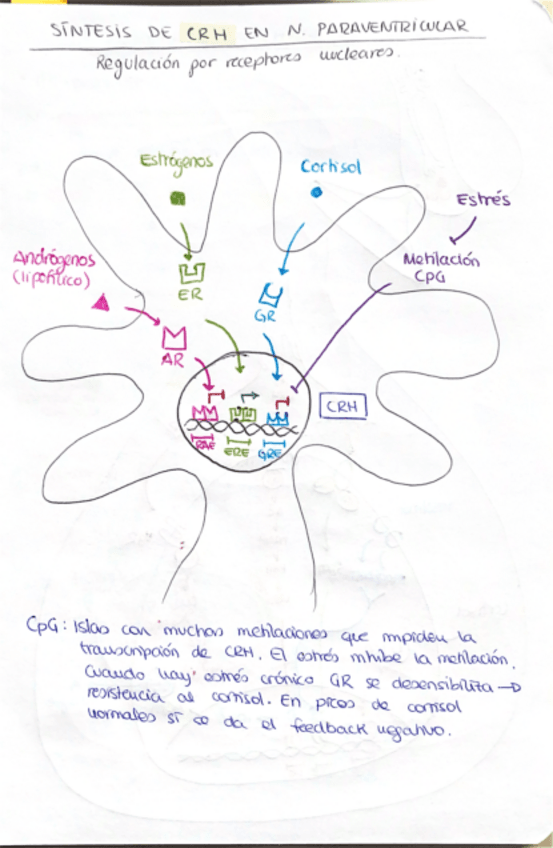 SÍNTESIS DE CRH EN N. PARAVENTRICULAR
Regulación por receptores nucleares.
Estrógenos
Cortisol
Estrés
Andrógenos
(lipofílico)
Metilación
CpG
ER
GR
AR
CRH
RAE
ERE
GRE
CpG: Islas con muchas metilaciones que impiden la
transcripción de CRH. El estrés inhibe la metilación.
Cuando hay estrés crónico GR se desensibiliza →
resistencia al cortisol. En picos de cortisol
normales sí se da el feedback negativo.